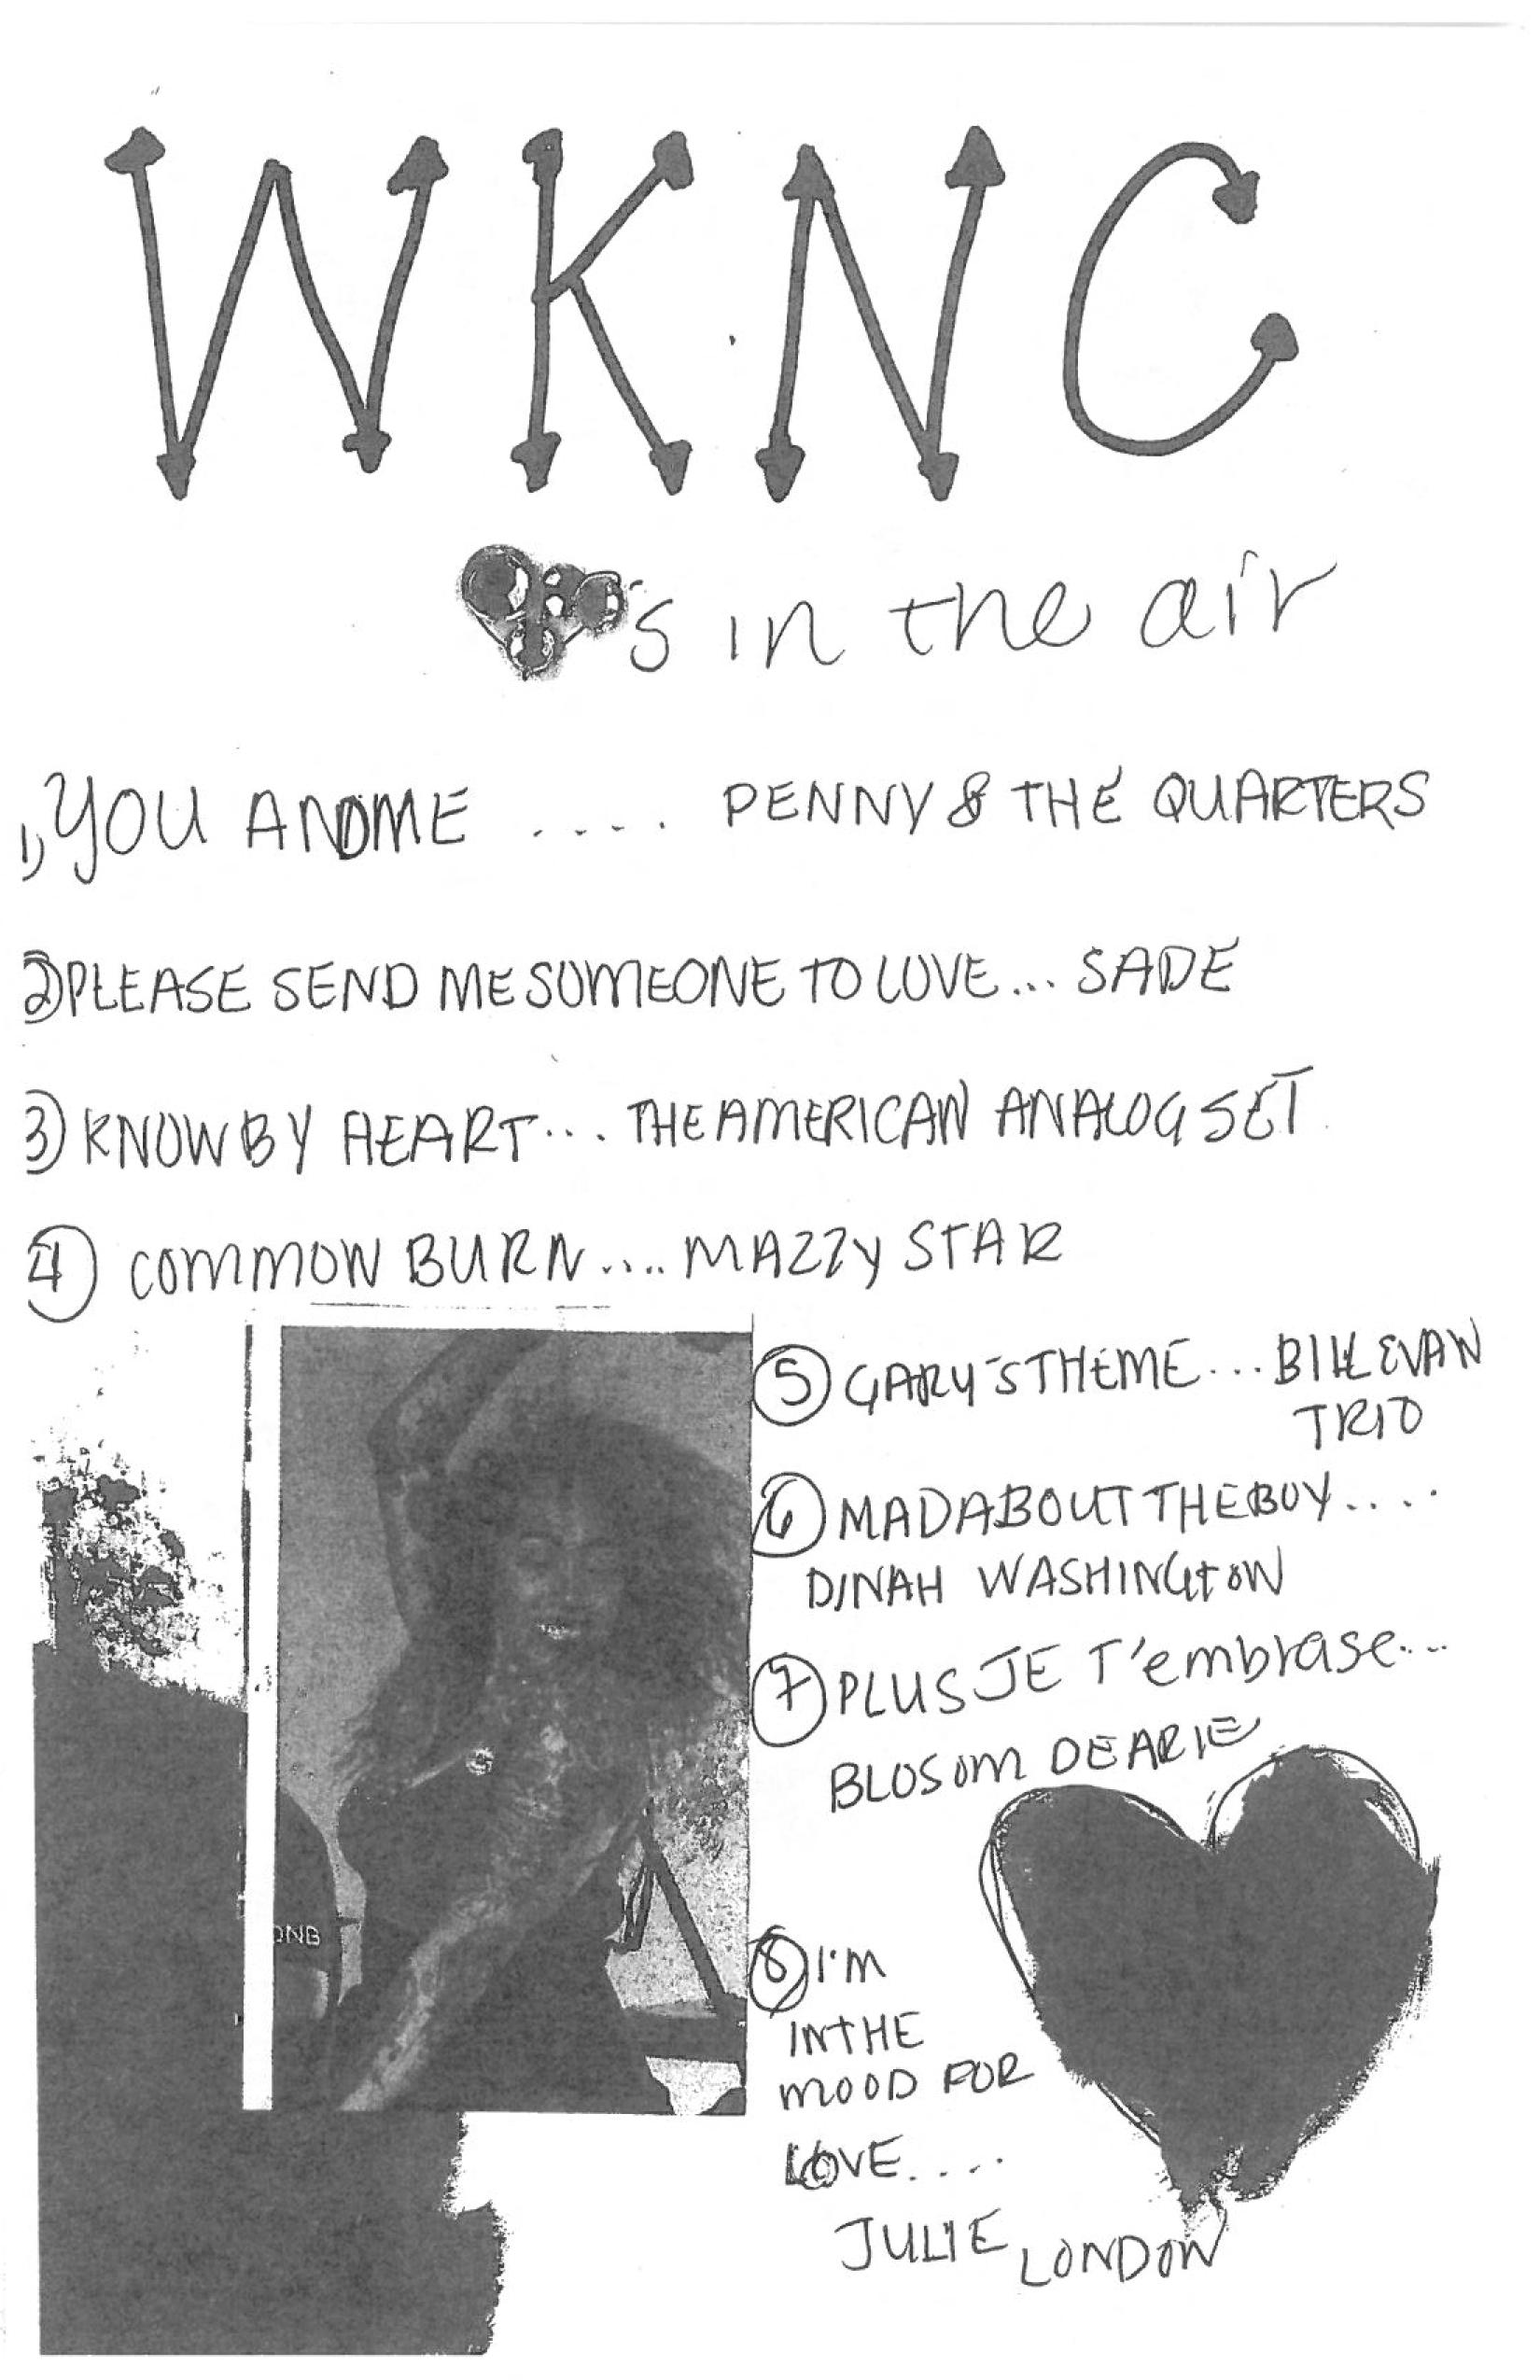 WKNC
's in the air
1) YOU AND ME .... PENNY & THE QUARTERS
2) PLEASE SEND ME SOMEONE TO LOVE... SADE
3) KNOW BY HEART... THE AMERICAN ANALOG SET
4) COMMON BURN.... MAZZY STAR
5) GARY'S THEME... BILL EVAN
TRIO
6) MAD ABOUT THE BOY....
DINAH WASHINGTON
7) PLUS JE T'embrase...
BLOSOM DEARIE
8) I'M
IN THE
MOOD FOR
LOVE....
JULIE LONDON
ONB